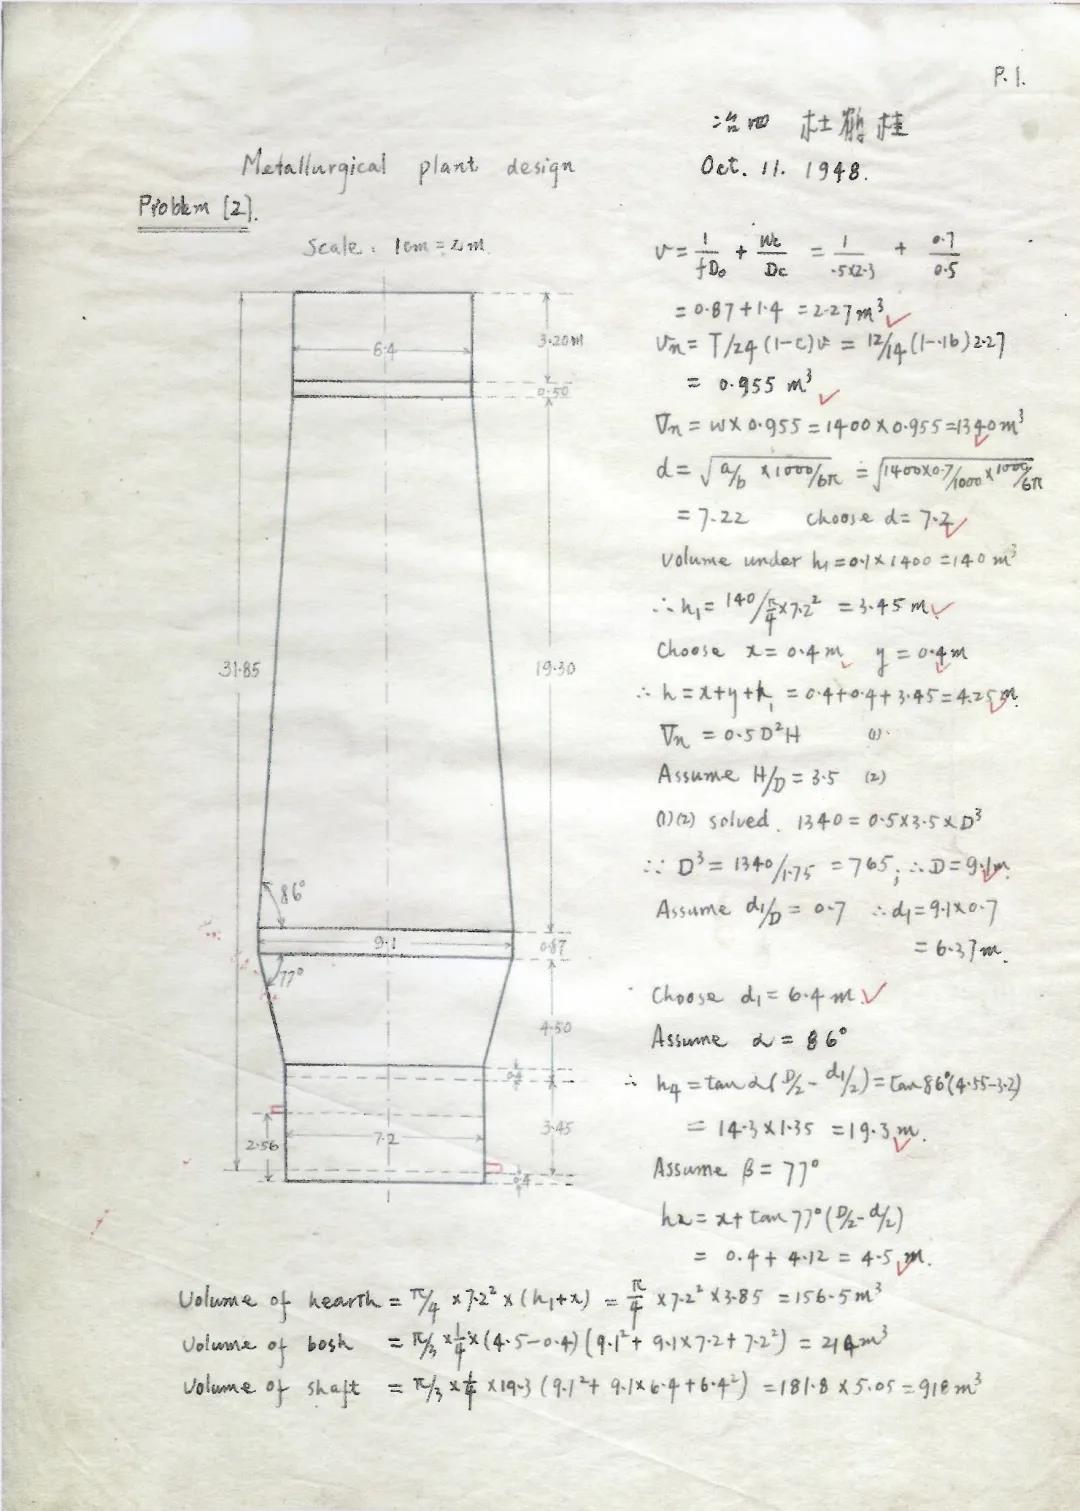 P. 1.
冶四 杜鹤桂
Oct. 11. 1948.
Metallurgical plant design
Problem [2].
Scale: 1cm = 2m
v = 1/fDo + Wc/Dc = 1/.5×2.3 + 0.7/0.5
= 0.87+1.4 = 2.27 m³
Vn = T/24 (1-c)v = 12/14 (1-.16) 2.27
= 0.955 m³
Vn = W× 0.955 = 1400 × 0.955 = 1340 m³
d = √(a/b × 1000/6π) = √(1400×0.7/1000 × 1000/6π)
= 7.22 choose d = 7.2
Volume under h₁ = 0.1 × 1400 = 140 m³
∴ h₁ = 140/(π/4 × 7.2²) = 3.45 m
Choose x = 0.4 m y = 0.4 m
∴ h = x+y+h₁ = 0.4+0.4+3.45 = 4.25 m.
Vn = 0.5 D²H (1).
Assume H/D = 3.5 (2)
(1)(2) solved. 1340 = 0.5×3.5×D³
∵ D³ = 1340/1.75 = 765; ∴ D = 9.1m.
Assume d₁/D = 0.7 ∴ d₁ = 9.1×0.7
= 6.37 m.
Choose d₁ = 6.4 m
Assume α = 86°
∴ h₄ = tan α (D/2 - d₁/2) = tan 86° (4.55-3.2)
= 14.3 × 1.35 = 19.3 m.
Assume β = 77°
h₂ = x + tan 77° (D/2 - d/2)
= 0.4 + 4.12 = 4.5 m.
6.4
3.20m
0.50
31.85
19.30
86°
9.1
0.87
77°
4.50
0.4
2.56
7.2
3.45
0.4
Volume of hearth = π/4 × 7.2² × (h₁+x) = π/4 × 7.2² × 3.85 = 156.5 m³
Volume of bosh = π/3 × 1/4 × (4.5-0.4) (9.1² + 9.1×7.2 + 7.2²) = 214 m³
Volume of shaft = π/3 × 1/4 × 19.3 (9.1² + 9.1×6.4 + 6.4²) = 181.8 × 5.05 = 918 m³